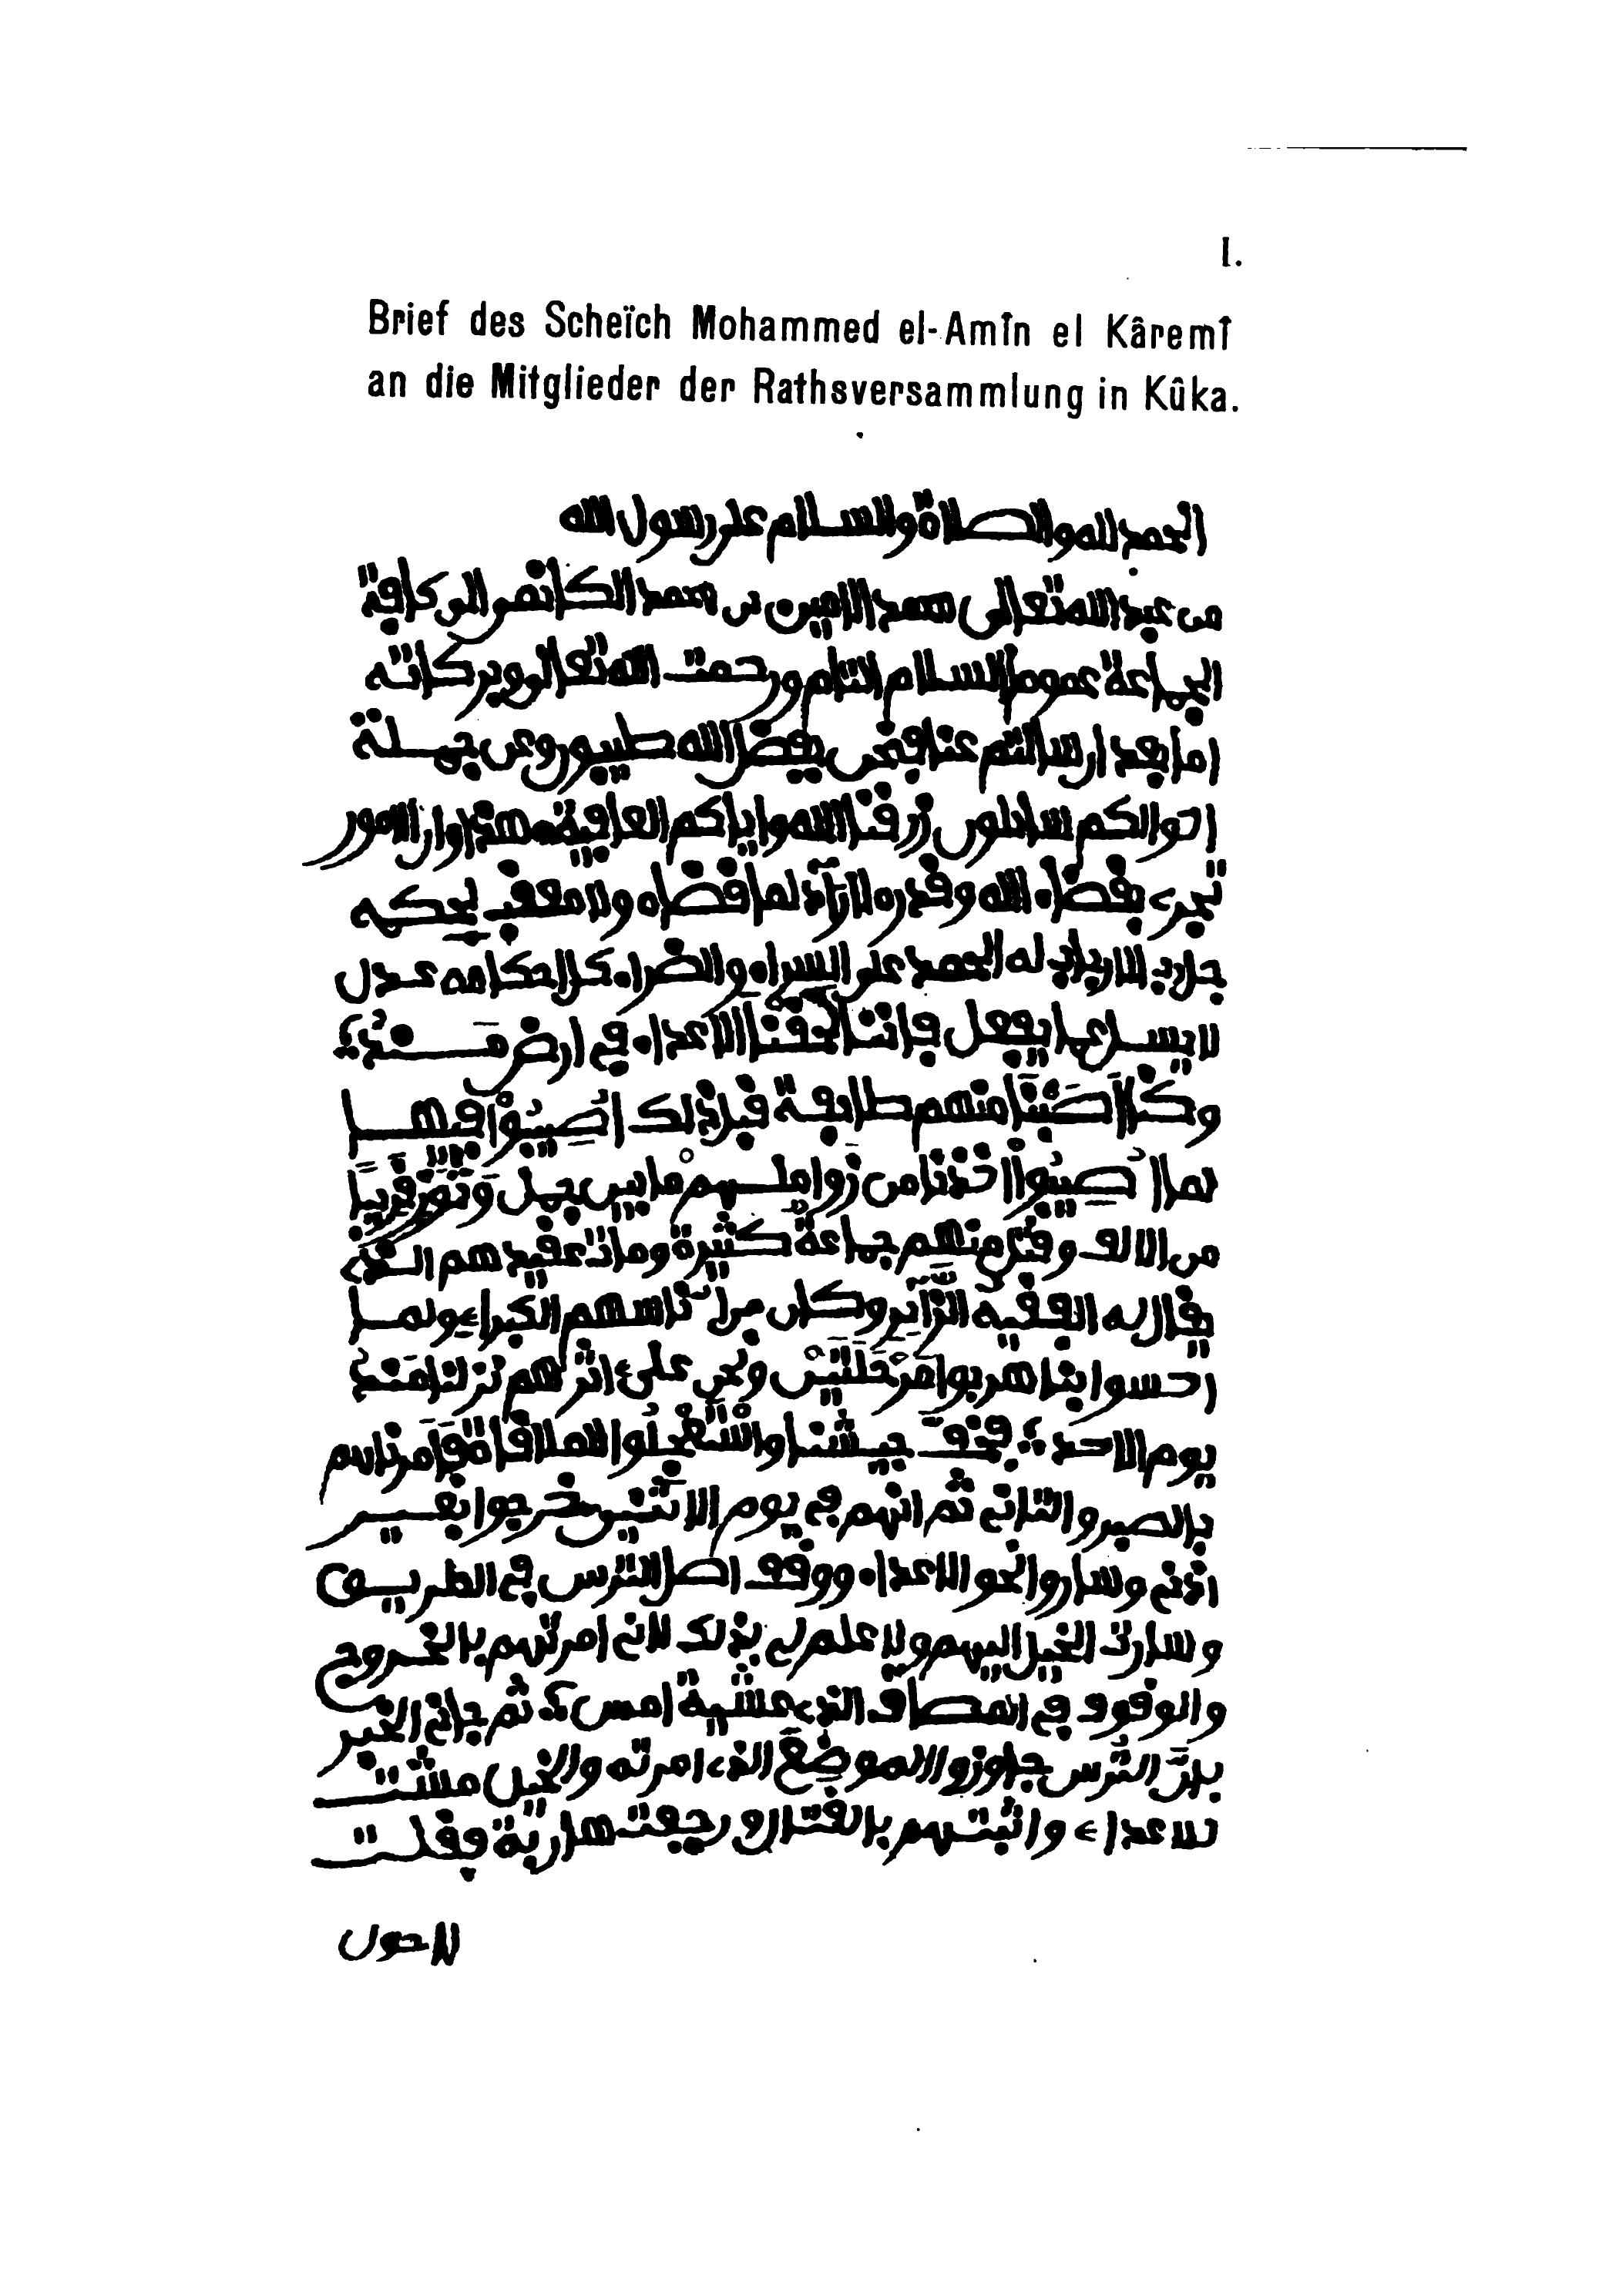 I.
Brief des Scheïch Mohammed el-Amîn el Kâremî
an die Mitglieder der Rathsversammlung in Kûka.
الحمد لله والصلاة والسلام على رسول الله
من عبد الله تعالى محمد الامين بن محمد الكانمى الى كافة
الجماعة عموم السلام التام ورحمت الله تعالى وبركاته
اما بعد ان سالتم عنا فنحن بفضل الله طيبون وعن جملة
احوالكم سائلون رزقنا الله واياكم العافية هذا وان الامور
تجرى بقضاء الله وقدره لا رآد لما قضاه ولا معقب لحكمه
رب الارباب له الحمد على السراء والضراء كل احكامه عدل
لا يسل عما يفعل فاننا لحقنا الاعداء في ارض
وكنا اصبنا منهم طائفة قبل ذلك اصيبوا فيها
لما اصيبوا اخذنا من زواملهم ما بين جمل وثور قريبا
من الالف وقتل منهم جماعة كثيرة ومات عقيدهم الذى
يقال له الفقيه الزاير وكان من ناسهم الكبراء ولما
احسوا بنا هربوا مرحلتين ونحن على اثرهم نزلنا
يوم الاحد جيشنا واستعجلوا الملاقاة فامرناهم
بالصبر والتانى ثم انهم في يوم الاثنين خرجوا بغير
اذنى وساروا نحو الاعداء ووقف اهل الترس في الطريق
وسارت الخيل اليهم ولا علم لى بذلك لانى امرتهم بالخروج
والوقوف في المصاف الذى عشية امس ثم جانى الخبر
بان الترس جاوزوا الموضع الذى امرته والخيل مشت
للاعداء واثبتهم بالقتال ورجعت هاربة فقلت
لا حول